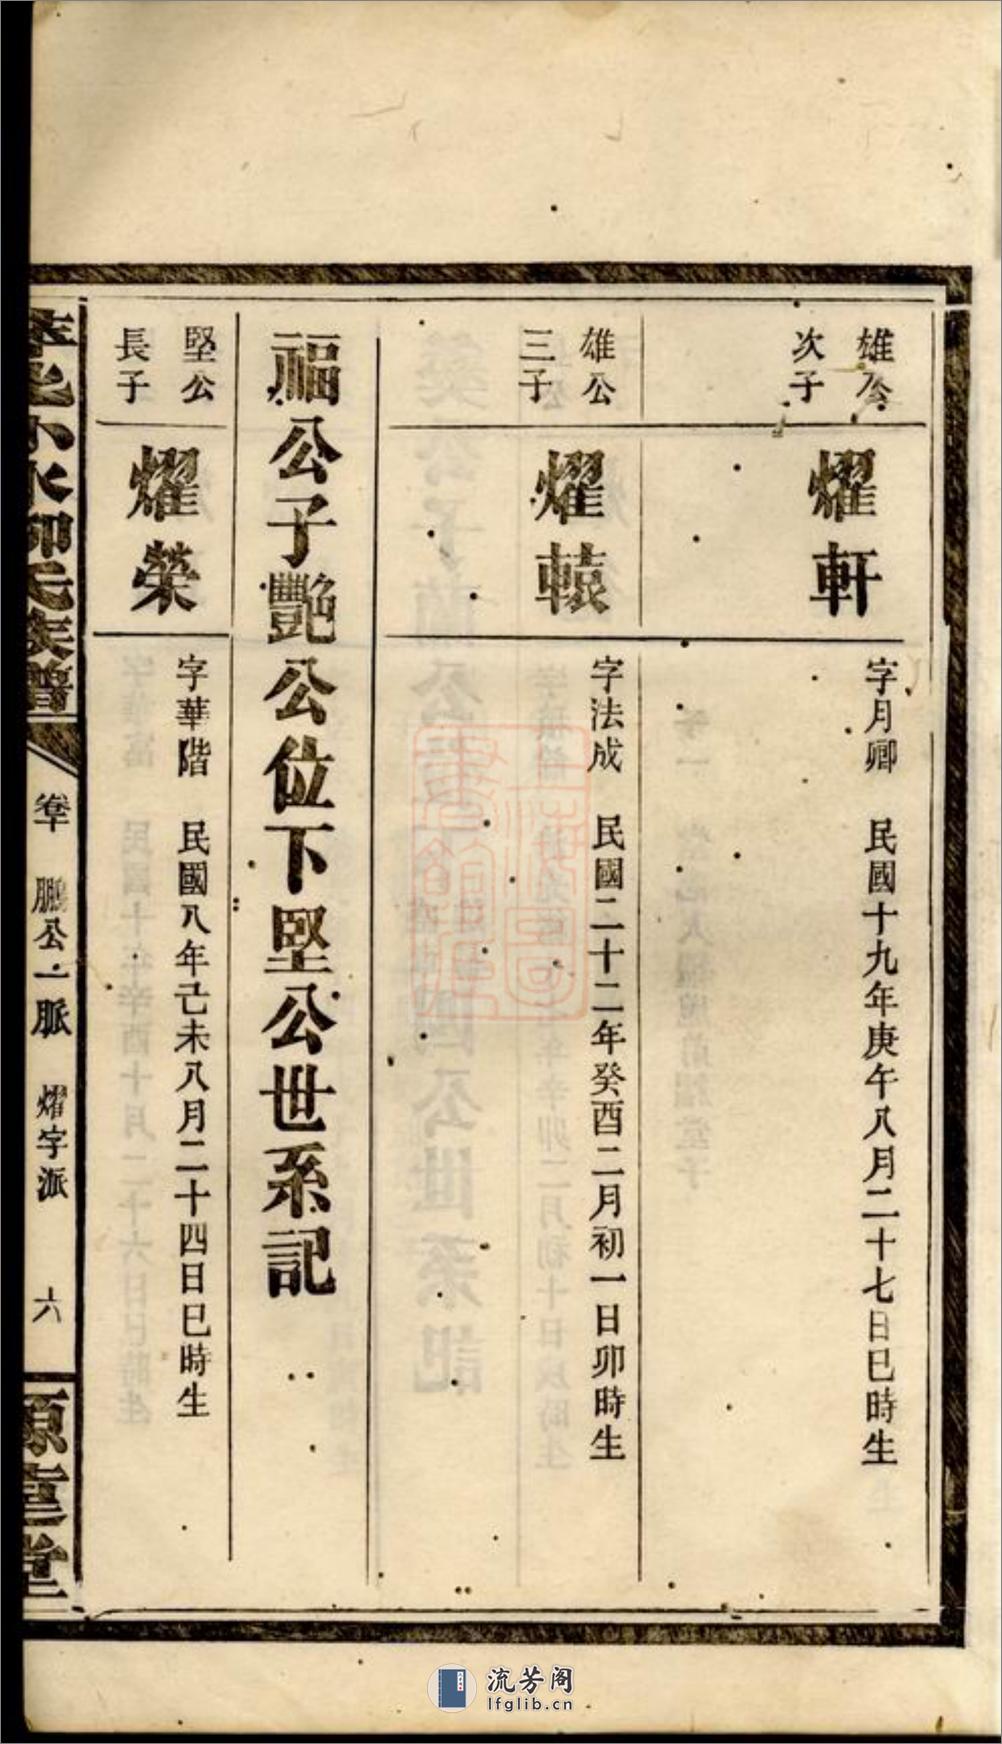 雄公
次子
耀軒
字月卿 民國十九年庚午八月二十七日巳時生
雄公
三子
耀轅
字法成 民國二十二年癸酉二月初一日卯時生
福公子艷公位下堅公世系記
堅公
長子
耀榮
字華階 民國八年己未八月二十四日巳時生
小水 氏族譜
卷十 鵬公一脈 燿字派 六
堂
流芳阁
lfglib.cn